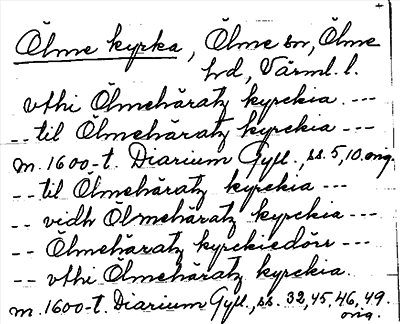 Ölme kyrka, Ölme sn, Ölme
hd, Värml. l.
vthi Ölmehäratz kyrekia. ---
-- til Ölmehäratz kyrekia ---
m. 1600-t. Diarium Gyll., ss. 5, 10. orig.
-- til Ölmehäratz kyrekia ---
-- vidh Ölmehäratz kyrekia ---
-- Ölmehäratz kyrekiedörr ---
-- vthi Ölmehäratz kyrekia.
m. 1600-t. Diarium Gyll., ss. 32, 45, 46, 49.
orig.